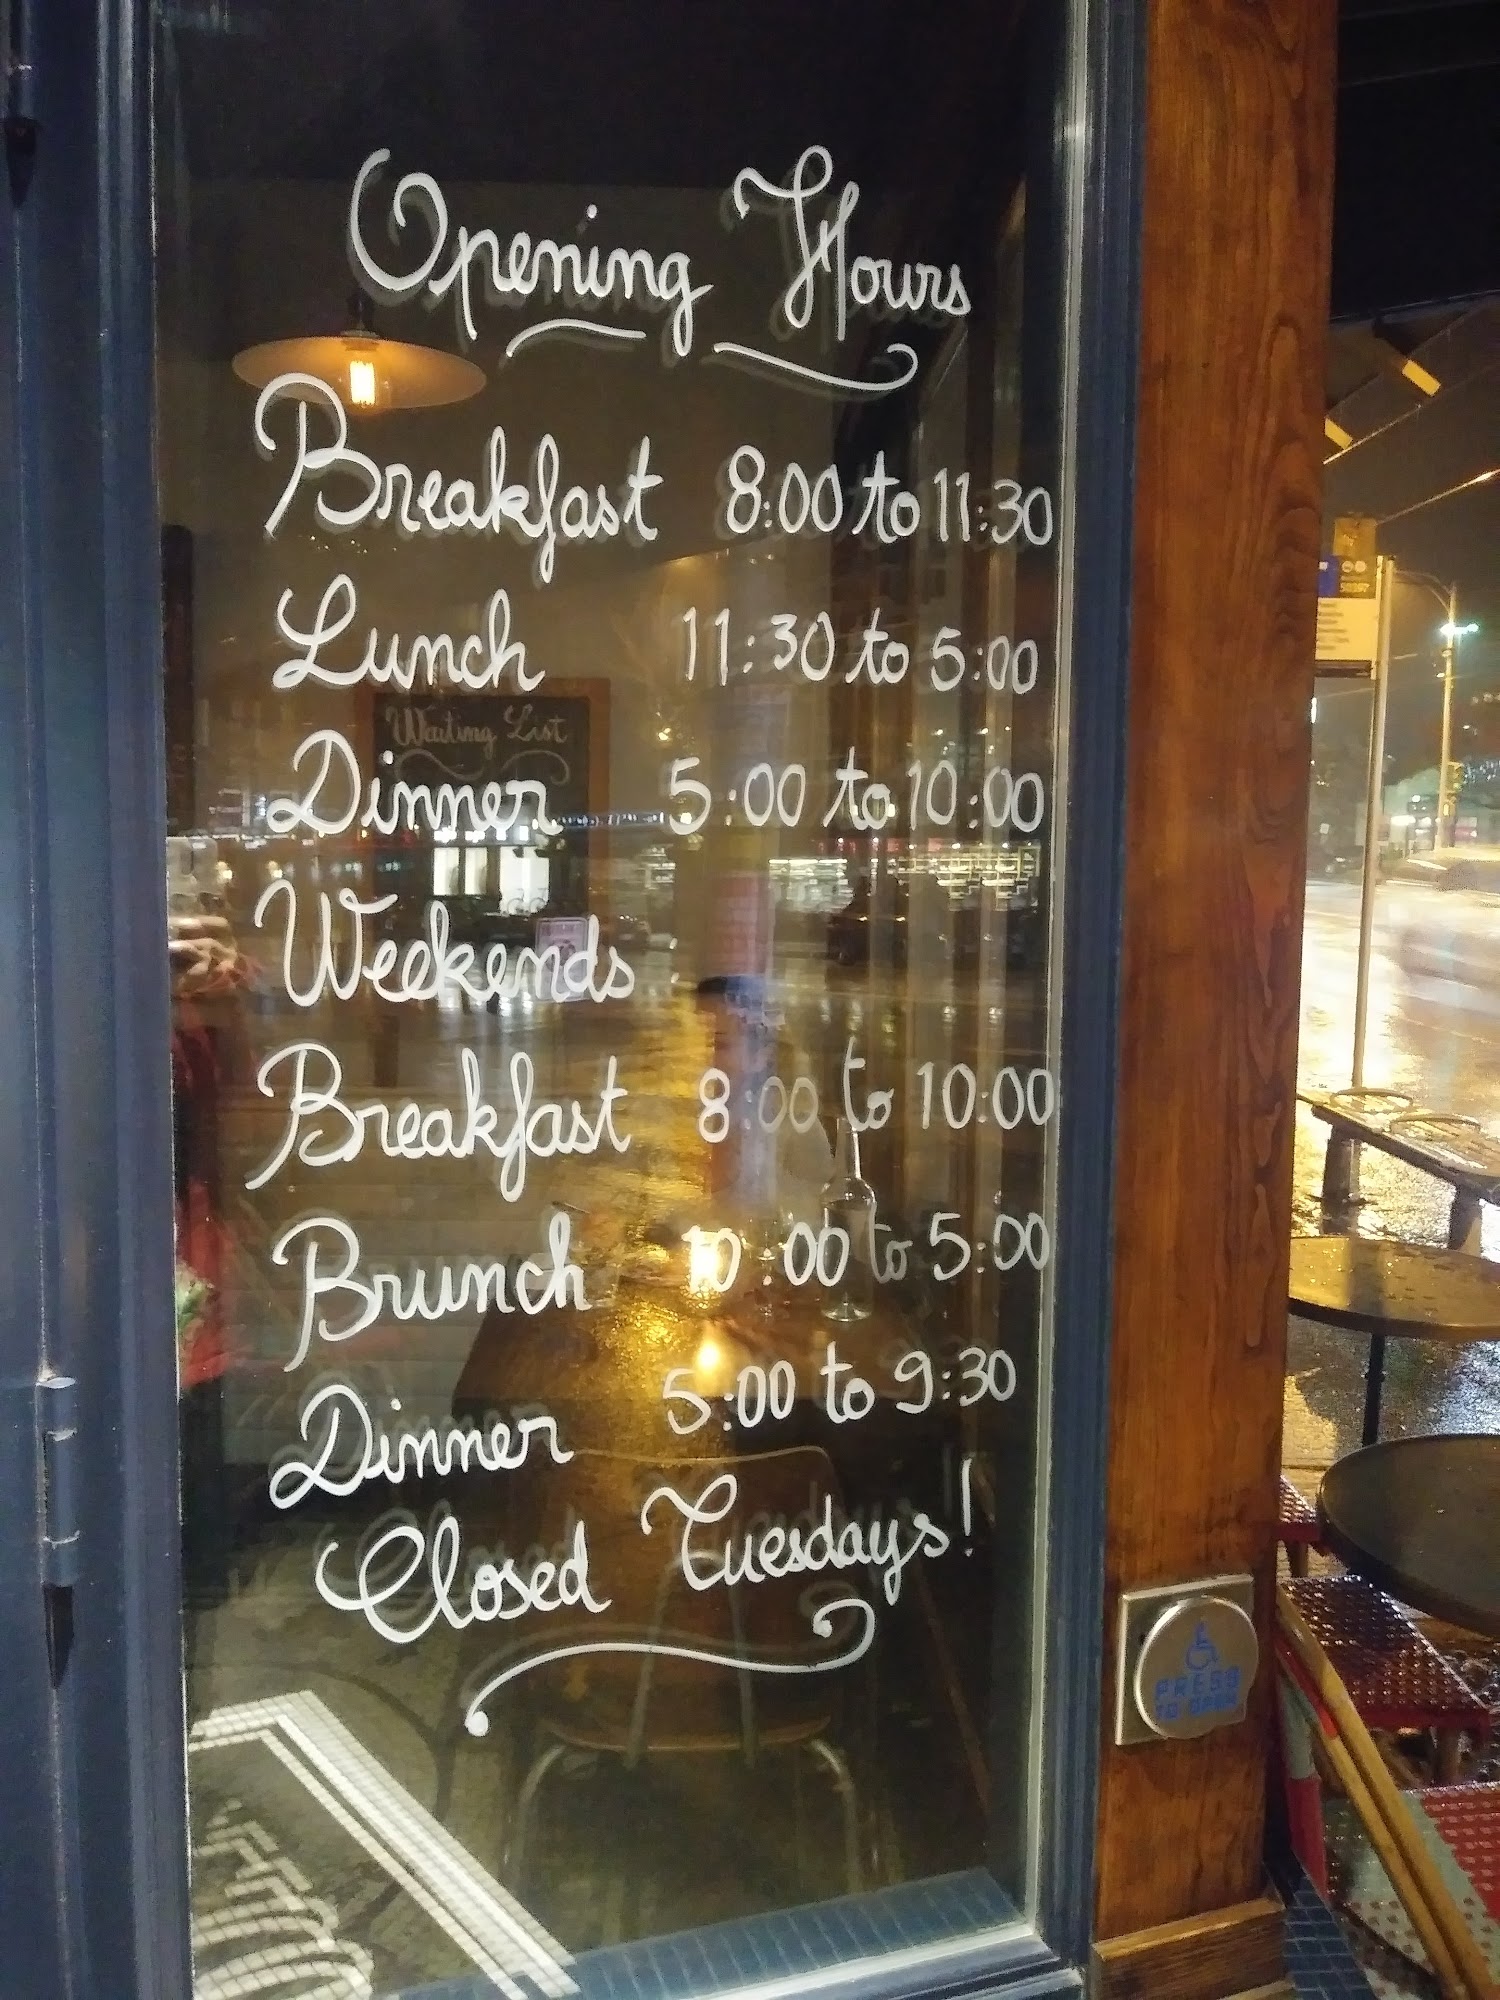 Opening Hours
Breakfast 8:00 to 11:30
Lunch 11:30 to 5:00
Waiting List
Dinner 5:00 to 10:00
Weekends
Breakfast 8:00 to 10:00
Brunch 10:00 to 5:00
Dinner 5:00 to 9:30
Closed Tuesdays!
PRESS
TO OPEN